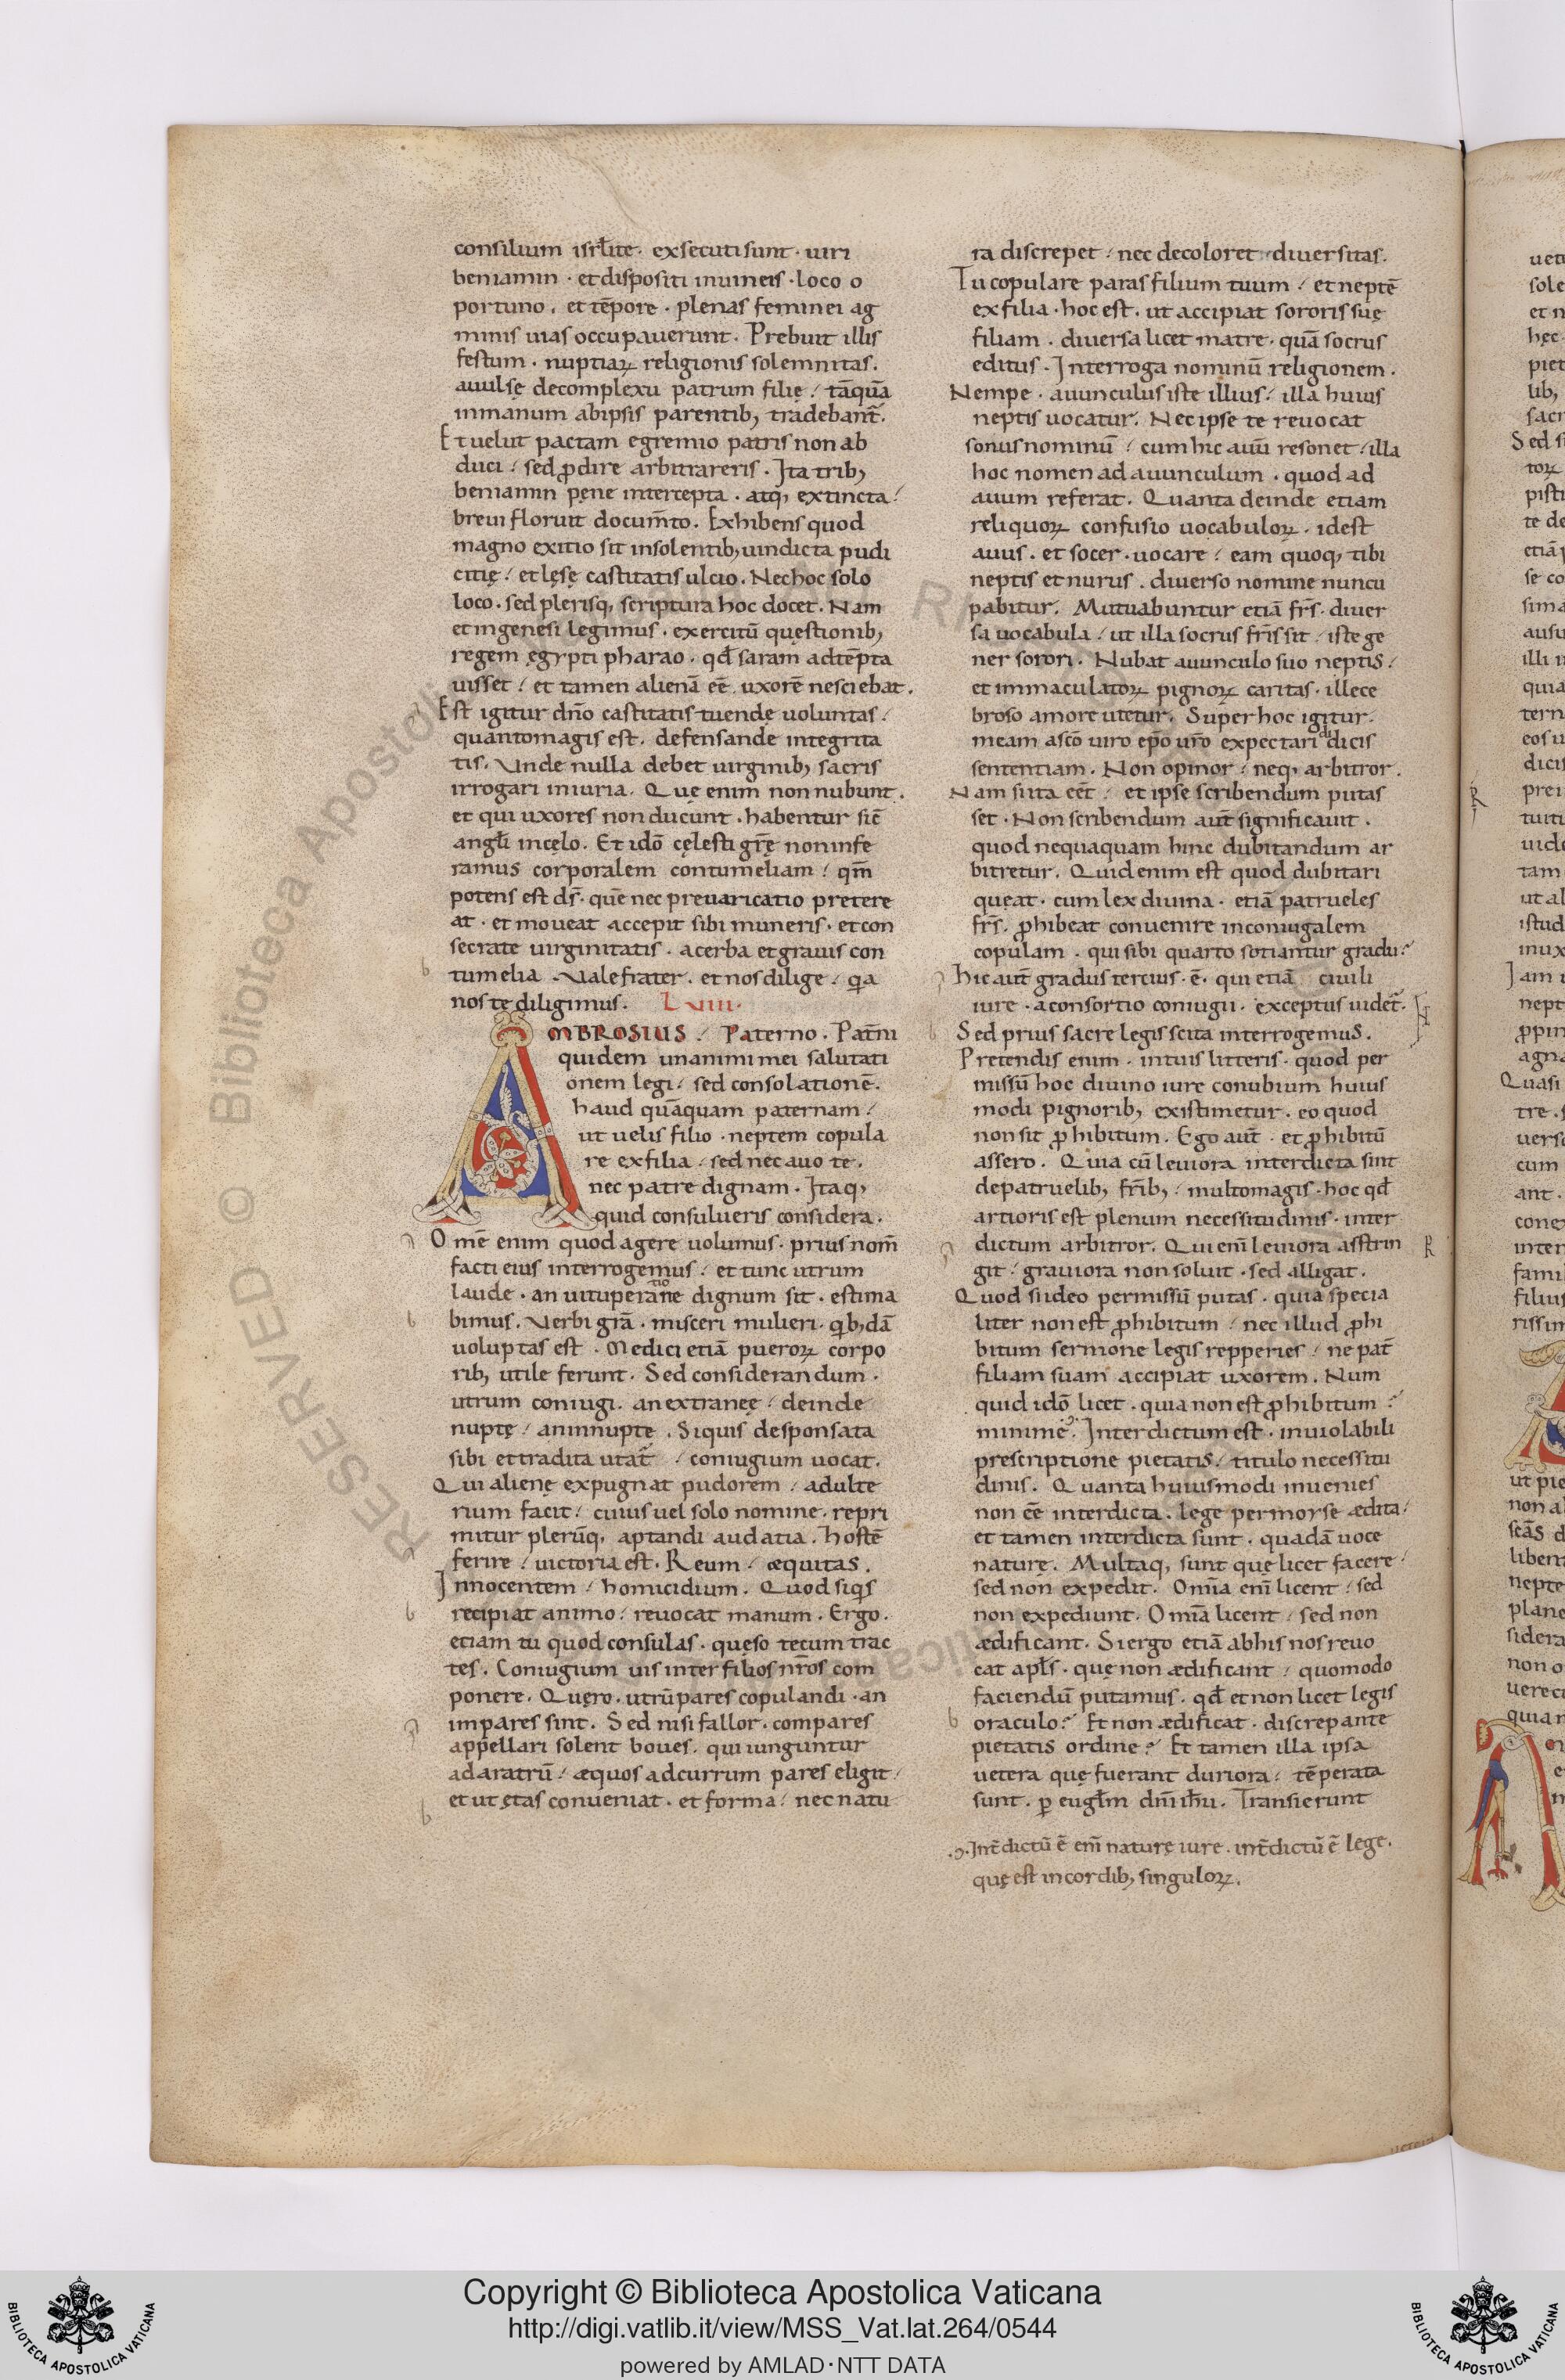 consilium isrl̄ite · exsecuti sunt · uiri
beniamin · et dispositi in uineis · loco o
portuno · et tēpore · plenas feminei ag
minis uias occupauerunt. Prebuit illis
festum · nuptiaꝝ religionis solemnitas.
auulsę de complexu patrum filię / tāquā
in manum ab ipsis parentib; tradebant̄.
Et uelut pactam e gremio patris non ab
duci / sed ꝓdire arbitrareris. Ita trib;
beniamin pęne intercepta · atq; extincta /
breui floruit docum̄to. Exhibens quod
magno exitio sit insolentib; uindicta pudi
citię / et lęsę castitatis ulcio. Nec hoc solo
loco · sed plerisq; scriptura hoc docet. Nam
et in genesi legimus · exercitū quęstionib;
regem ęgypti pharao · qd̄ saram adtēpta
uisset / et tamen alienā eē uxorē nesciebat.
Est igitur dn̄o castitatis tuendę uoluntas /
quanto magis est · defensande integrita
tis. Vnde nulla debet uirginib; sacris
irrogari iniuria. Quę enim non nubunt ·
et qui uxores non ducunt · habentur sic̄
angl̄i in cęlo. Et idō cęlesti gr̄ę non infe
ramus corporalem contumeliam / qm̄
potens est ds̄ · quē nec preuaricatio pretere
at · et moueat accepit sibi muneris · et con
secrate uirginitatis · acerba et grauis con
tumelia. Vale frater · et nos dilige / qa
nos te diligimus. LVIII.
AMBROSIUS / Paterno. Pat̄ni
quidem unanimi mei salutati
onem legi / sed consolationē.
haud quāquam paternam /
ut uelis filio · neptem copula
re ex filia / sed nec auo te ·
nec patre dignam. Itaq;
quid consulueris considera.
Omē enim quod agere uolumus · prius nom̄
facti eius interrogemus / et tunc utrum
laude · an uituperane dignum sit · estima
tio
bimus. Verbi grā · misceri mulieri · qb;dā
uoluptas est · Medici etiā pueroꝝ corpo
rib; utile ferunt. Sed considerandum ·
utrum coniugi · an extraneę / deinde
nuptę / an innuptę. Si quis desponsata
sibi et tradita utat̄ / coniugium uocat.
Qui alienę expugnat pudorem / adulte
rium facit / cuius uel solo nomine · repri
mitur plerūq; aptandi audatia. Hostē
ferire / uictoria est. Reum / æquitas.
Innocentem / homicidium. Quod siqs
recipiat animo / reuocat manum. Ergo ·
etiam tu quod consulas · quęso tecum trac
tes. Coniugium uis inter filios nr̄os com
ponere. Quęro · utrū pares copulandi · an
impares sint. Sed nisi fallor · compares
appellari solent boues · qui iunguntur
ad aratrū / æquos ad currum pares eligit /
et ut ętas conueniat · et forma / nec natu
ra discrepet / nec decoloret / diuersitas.
Tu copulare paras filium tuum / et neptē
ex filia · hoc est · ut accipiat sororis suę
filiam · diuersa licet matre · quā socrus
editus. Interroga nominū religionem.
Nempe · auunculus iste illius / illa huius
neptis uocatur. Nec ipse te reuocat
sonus nominū / cum hic auū resonet / illa
hoc nomen ad auunculum · quod ad
auum referat. Quanta deinde etiam
reliquoꝝ confusio uocabuloꝝ · idest
auus · et socer · uocare / eam quoq; tibi
neptis et nurus · diuerso nomine nuncu
pabitur. Mutuabuntur etiā fr̄s · diuer
sa uocabula / ut illa socrus fr̄is sit / iste ge
ner sorori. Nubat auunculo suo neptis /
et immaculatoꝝ pignoꝝ caritas · illece
broso amore utetur. Super hoc igitur ·
meam ascō uiro ep̄o ur̄o expectari dicis
sententiam. Non opinor / neq; arbitror.
Nam si ita eēt / et ipse scribendum putas
set · Non scribendum aut̄ significauit ·
quod nequaquam hinc dubitandum ar
bitretur. Quid enim est quod dubitari
queat · cum lex diuina · etiā patrueles
fr̄s · ꝓhibeat conuenire in coniugalem
copulam · qui sibi quarto sotiantur gradu?
Hic aut̄ gradus tercius · ē · qui etiā ciuili
iure · a consortio coniugii · exceptus uidet̄.
Sed prius sacre legis scita interrogemus.
Pretendis enim · in tuis litteris · quod per
missū hoc diuino iure conubium huius
modi pignorib; existimetur · eo quod
non sit ꝓhibitum. Ego aut̄ · et ꝓhibitū
assero. Quia cū leuiora interdicta sint
de patruelib; fr̄ib; / multo magis · hoc qd̄
artioris est plenum necessitudinis · inter
dictum arbitror. Qui enī leuiora asstrin
git / grauiora non soluit · sed alligat.
Quod si ideo permissū putas · quia specia
liter non est ꝓhibitum / nec illud ꝓhi
bitum sermone legis repperies / ne pat̄
filiam suam accipiat uxorem. Num
quid idō licet · quia non est ꝓhibitum?
minime. Interdictum est · inuiolabili
prescriptione pietatis / titulo necessitu
dinis. Quanta huiusmodi inuenies
non eē interdicta · lege per moyse ædita /
et tamen interdicta sunt · quadā uoce
naturę. Multaq; sunt quę licet facere /
sed non expedit. Omīa enī licent / sed
non expediunt. Omīa licent / sed non
ædificant. Si ergo etiā ab his nos reuo
cat apl̄s · quę non ædificant / quomodo
faciendū putamus · qd̄ et non licet legis
oraculo? Et non ædificat · discrepante
pietatis ordine? Et tamen illa ipsa
uetera quę fuerant duriora / tēperata
sunt · ꝑ eugl̄m dn̄i ih̄u. Transierunt
Int̄dictū ē enī naturę iure · int̄dictū ē lege ·
quę est in cordib; singuloꝝ.
Copyright © Biblioteca Apostolica Vaticana
http://digi.vatlib.it/view/MSS_Vat.lat.264/0544
powered by AMLAD·NTT DATA